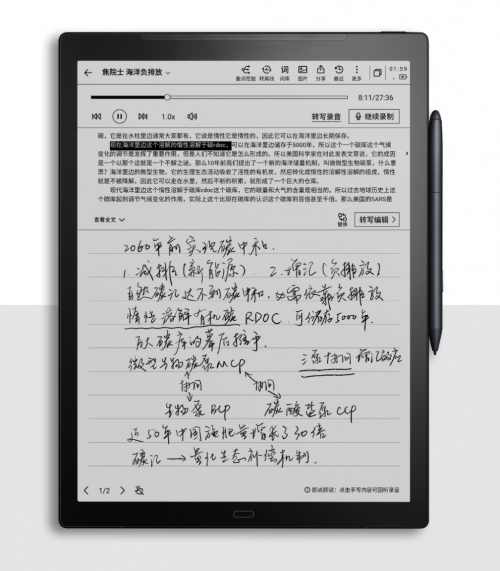 焦院士 海洋负排放
转离线 词库 图片 分享 最近 更多
01:59
8:11/27:36
1.0x 转写录音 继续录制
碳，它是在水柱里边通常大家都有，它说是惰性它是惰性的，因此它可以在海洋里边长期保存。
现在海洋里边这个溶解的惰性溶解于碳rdoc，可以在海洋里边储存于5000年，所以这一个一个碳库这个气候
变化的调节是发挥了重要作用，但是人们不知道它是怎么形成的，所以美国科学家在对此发表文章说，它的成因
是一个以那个这就是一个不解之谜。那么10年前我们提出了一个新的海洋储量机制，叫做微型生物碳泵，什么意
思？海洋里边的微型生物，它的生理生态活动吸收了活性的有机碳，然后转化成惰性的溶解性溶解的组成，惰性
就是不被降解，因此它可以走在水里，然后不断的积累，就形成了一个巨大的仓库。
现代海洋里边这个惰性溶解于碳库rdoc这个碳库，它的碳量和大气的含量是相当的，所以过去地球历史上这
个碳库起到调节气候变化的作用，实际上这个出现在碳库的认识这个碳库到百倍甚至千倍。那么美国的SARS是
查看全文 替换 转写编辑
2060年前实现碳中和.
1. 减排(新能源) 2. 增汇(负排放)
自然碳汇达不到碳中和,必需依靠负排放
惰性溶解有机碳 RDOC. 可储存5000年.
百大碳库的幕后推手
微型生物碳泵MCP 三泵协同 增汇效应
协同 协同
生物泵BCP 碳酸盐泵CCP
近50年中国施肥量增长了30倍
碳汇 → 量化生态补偿机制.
1/2
即点即读：点击手写内容可回听录音